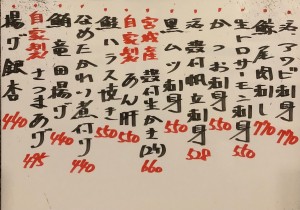 活アワビ刺身 770
鯨尾肉刺し 770
生トロサーモン刺身 550
かつお刺身 550
活〆付帆立刺身 528
黒ムツ刺身 550
宮城産 殻付生かき(2ヶ) 660
自家製 あん肝 550
鮭ハラス焼き 550
なめたかれい煮付け 440
鮪竜田揚げ 440
自家製 さつまあげ 495
揚げ銀杏 440